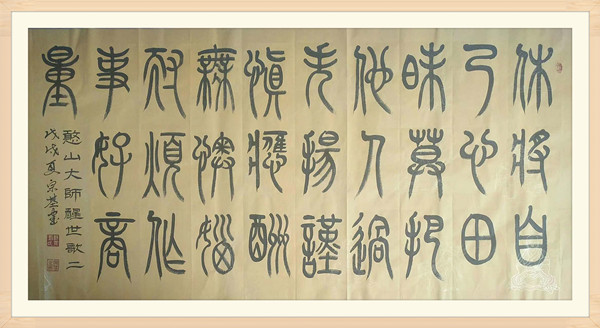 休將自
己心田
昧莫把
他人過
失揚謹
慎應酬
無懊惱
耐煩作
事好商
量
憨山大師醒世歌二
戊戌夏宗基書